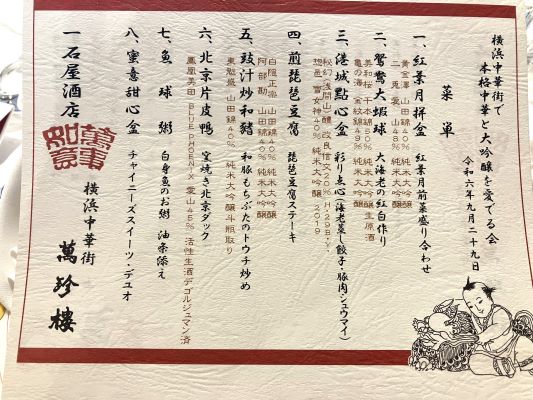 横浜中華街で
本格中華と大吟醸を愛でる会
令和六年九月二十九日
菜單
一、紅葉月拼盒 紅葉月前菜盛り合わせ
黄金澤 山田錦40% 純米大吟醸
二兎 愛山48% 純米大吟醸
二、鴛鴦大蝦球 大海老の紅白作り
美和桜 千本錦50% 純米大吟醸生原酒
亀の海 金紋錦49% 純米大吟醸
三、港城點心盒 彩り点心(海老蒸し餃子・豚肉・シュウマイ)
秘幻 浅間山 醴 改良信交20% H29BY
惣邑 富女神40% 純米大吟醸2019
四、煎琵琶豆腐 琵琶豆腐ステーキ
白隠正宗 山田錦40% 純米大吟醸
阿部勘 山田錦40% 純米大吟醸
五、豉汁炒和豬 和豚もちぶたのトウチ炒め
東魁盛 山田錦40% 純米大吟醸斗瓶取り
六、北京片皮鴨 窯焼き北京ダック
鳳凰美田 BLUE PHOENIX 愛山45% 活性生酒デゴルジュマン済
七、魚球粥 白身魚のお粥 油条添え
八、蜜意甜心盒 チャイニーズスイーツ・デュオ
一石屋酒店
萬事如意
横浜中華街 萬珍樓